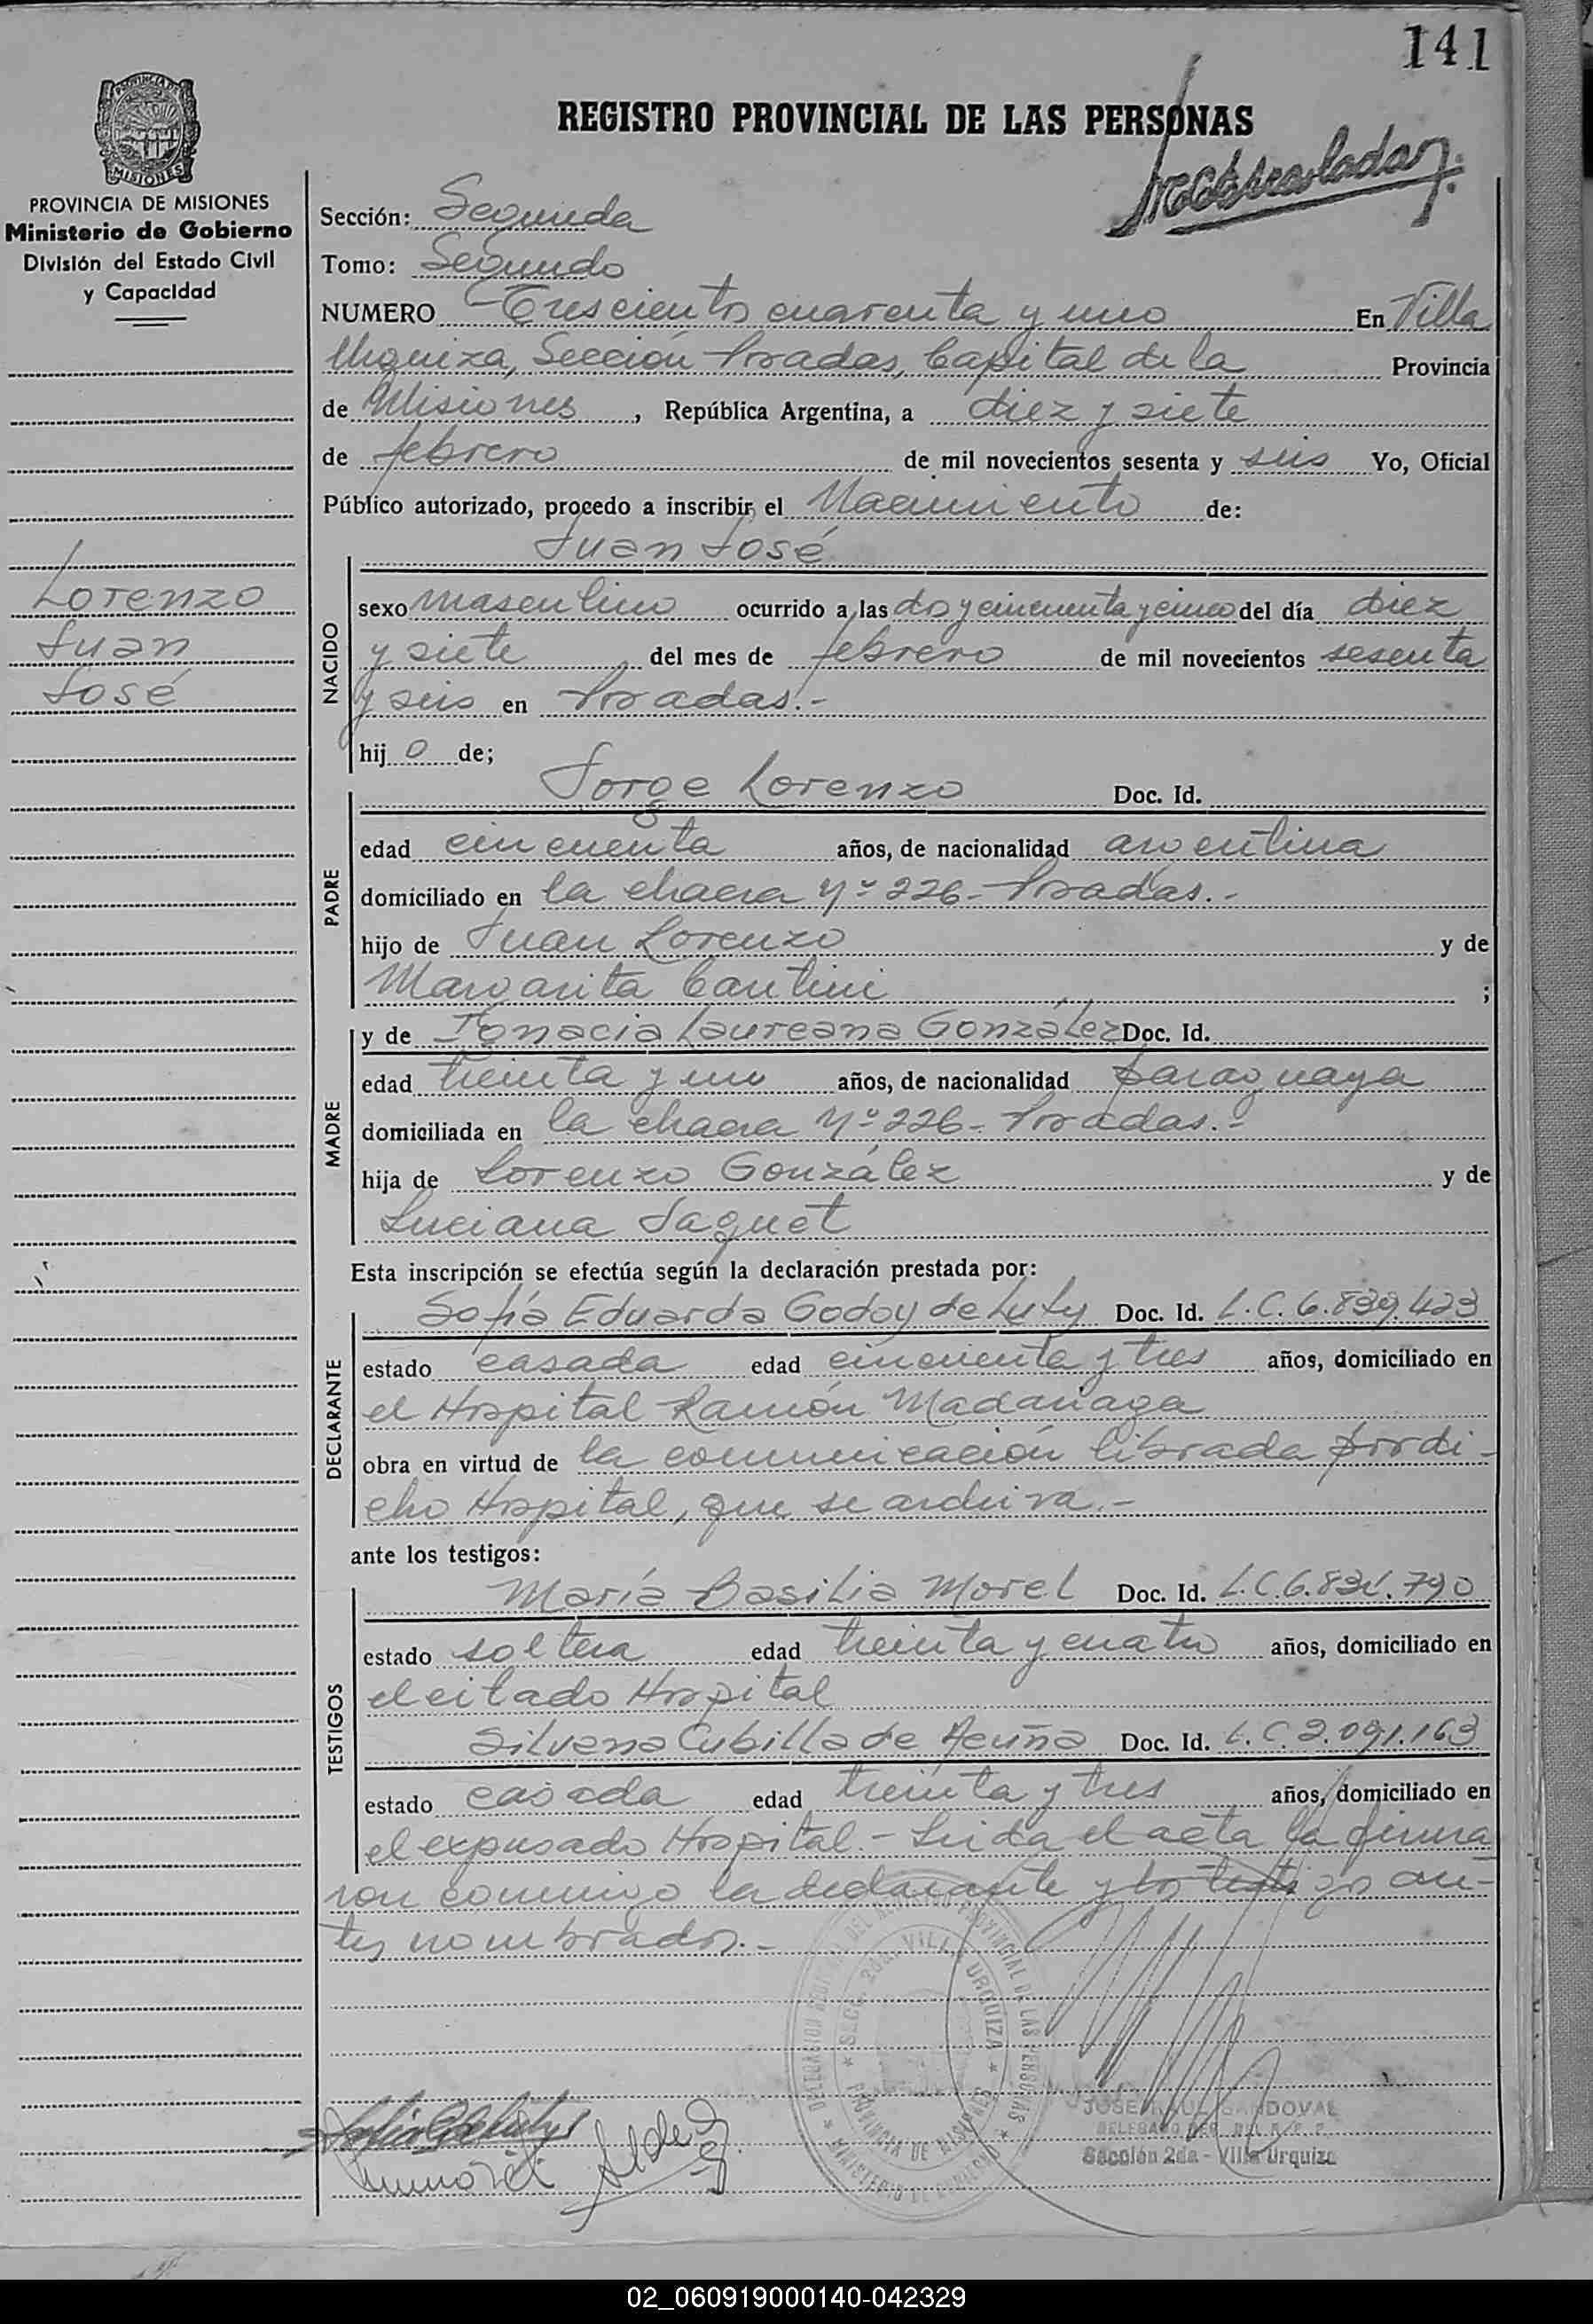 141
REGISTRO PROVINCIAL DE LAS PERSONAS
PROVINCIA DE MISIONES
Ministerio de Gobierno
División del Estado Civil
y Capacidad
Sección: Segunda
Tomo: Segundo
NUMERO Tresciento cuarenta y uno En Villa
Urquiza, Sección Posadas, Capital de la Provincia
de Misiones, República Argentina, a diez y siete
de febrero de mil novecientos sesenta y seis Yo, Oficial
Público autorizado, procedo a inscribir el Nacimiento de:
Juan José
Lorenzo
Juan
José
NACIDO
sexo masculino ocurrido a las dos y cincuenta y cinco del día diez
y siete del mes de febrero de mil novecientos sesenta
y seis en Posadas.-
hijo de;
PADRE
Jorge Lorenzo Doc. Id.
edad cincuenta años, de nacionalidad argentina
domiciliado en la chacra Nº 226 - Posadas.-
hijo de Juan Lorenzo y de
Margarita Cantini ;
MADRE
y de Ignacia Laureana González Doc. Id.
edad treinta y uno años, de nacionalidad paraguaya
domiciliada en la chacra Nº 226 - Posadas.-
hija de Lorenzo González y de
Luciana Saguet
Esta inscripción se efectúa según la declaración prestada por:
DECLARANTE
Sofía Eduarda Godoy de Luty Doc. Id. L.C. 6.839.423
estado casada edad cincuenta y tres años, domiciliado en
el Hospital Ramón Madariaga
obra en virtud de la comunicación librada por di-
cho Hospital, que se archiva.-
ante los testigos:
TESTIGOS
María Basilia Morel Doc. Id. L.C. 790
estado soltera edad treinta y cuatro años, domiciliado en
el citado Hospital
Silvana Cubilla de Acuña Doc. Id. L.C. 2.091.163
estado casada edad treinta y tres años, domiciliado en
el expresado Hospital.- Leida el acta la firma
ron conmigo la declarante y los testigos an-
tes nombrados.-
DELEGACION DEL REGISTRO PROVINCIAL DE LAS PERSONAS
SECC. 2da. VILLA URQUIZA
PROVINCIA DE MISIONES
MINISTERIO DE GOBIERNO
JOSE RAUL SANDOVAL
Sección 2da - Villa Urquiza
02_060919000140-042329